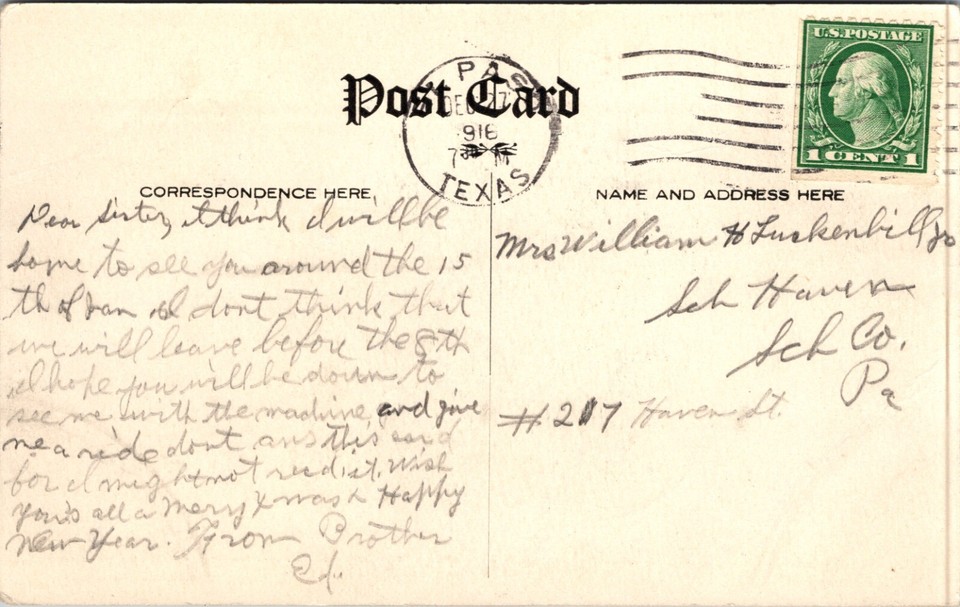 U.S. POSTAGE
1 CENT 1
Post Card
PAS
DEC 27
916
7 30 M
TEXAS
CORRESPONDENCE HERE.
NAME AND ADDRESS HERE
Dear Sister, I think I will be
home to see you around the 15
th of Jan I dont think that
we will leave before the 8th
I hope you will be down to
see me with the machine and give
me a ride dont ans this card
for I might not recd it. Wish
you's all a Merry Xmas & Happy
New Year. From Brother
Ed.
Mrs William H Luckenbill Jr
Sch Haven
Sch Co.
Pa
#217 Haven St.